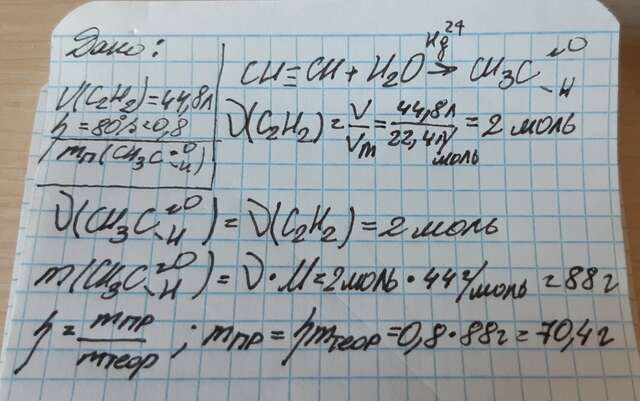 Дано:
V(C₂H₂)=44,8л
η=80%=0,8
mп(CH₃C=O-H)
CH≡CH+H₂O Hg²⁺→ CH₃C=O-H
ν(C₂H₂)=V/Vm=44,8л/22,4л/моль=2 моль
ν(CH₃C=O-H)=ν(C₂H₂)=2 моль
m(CH₃C=O-H)=ν·M=2моль·44г/моль=88г
η=mпр/mтеор; mпр=ηmтеор=0,8·88г=70,4г